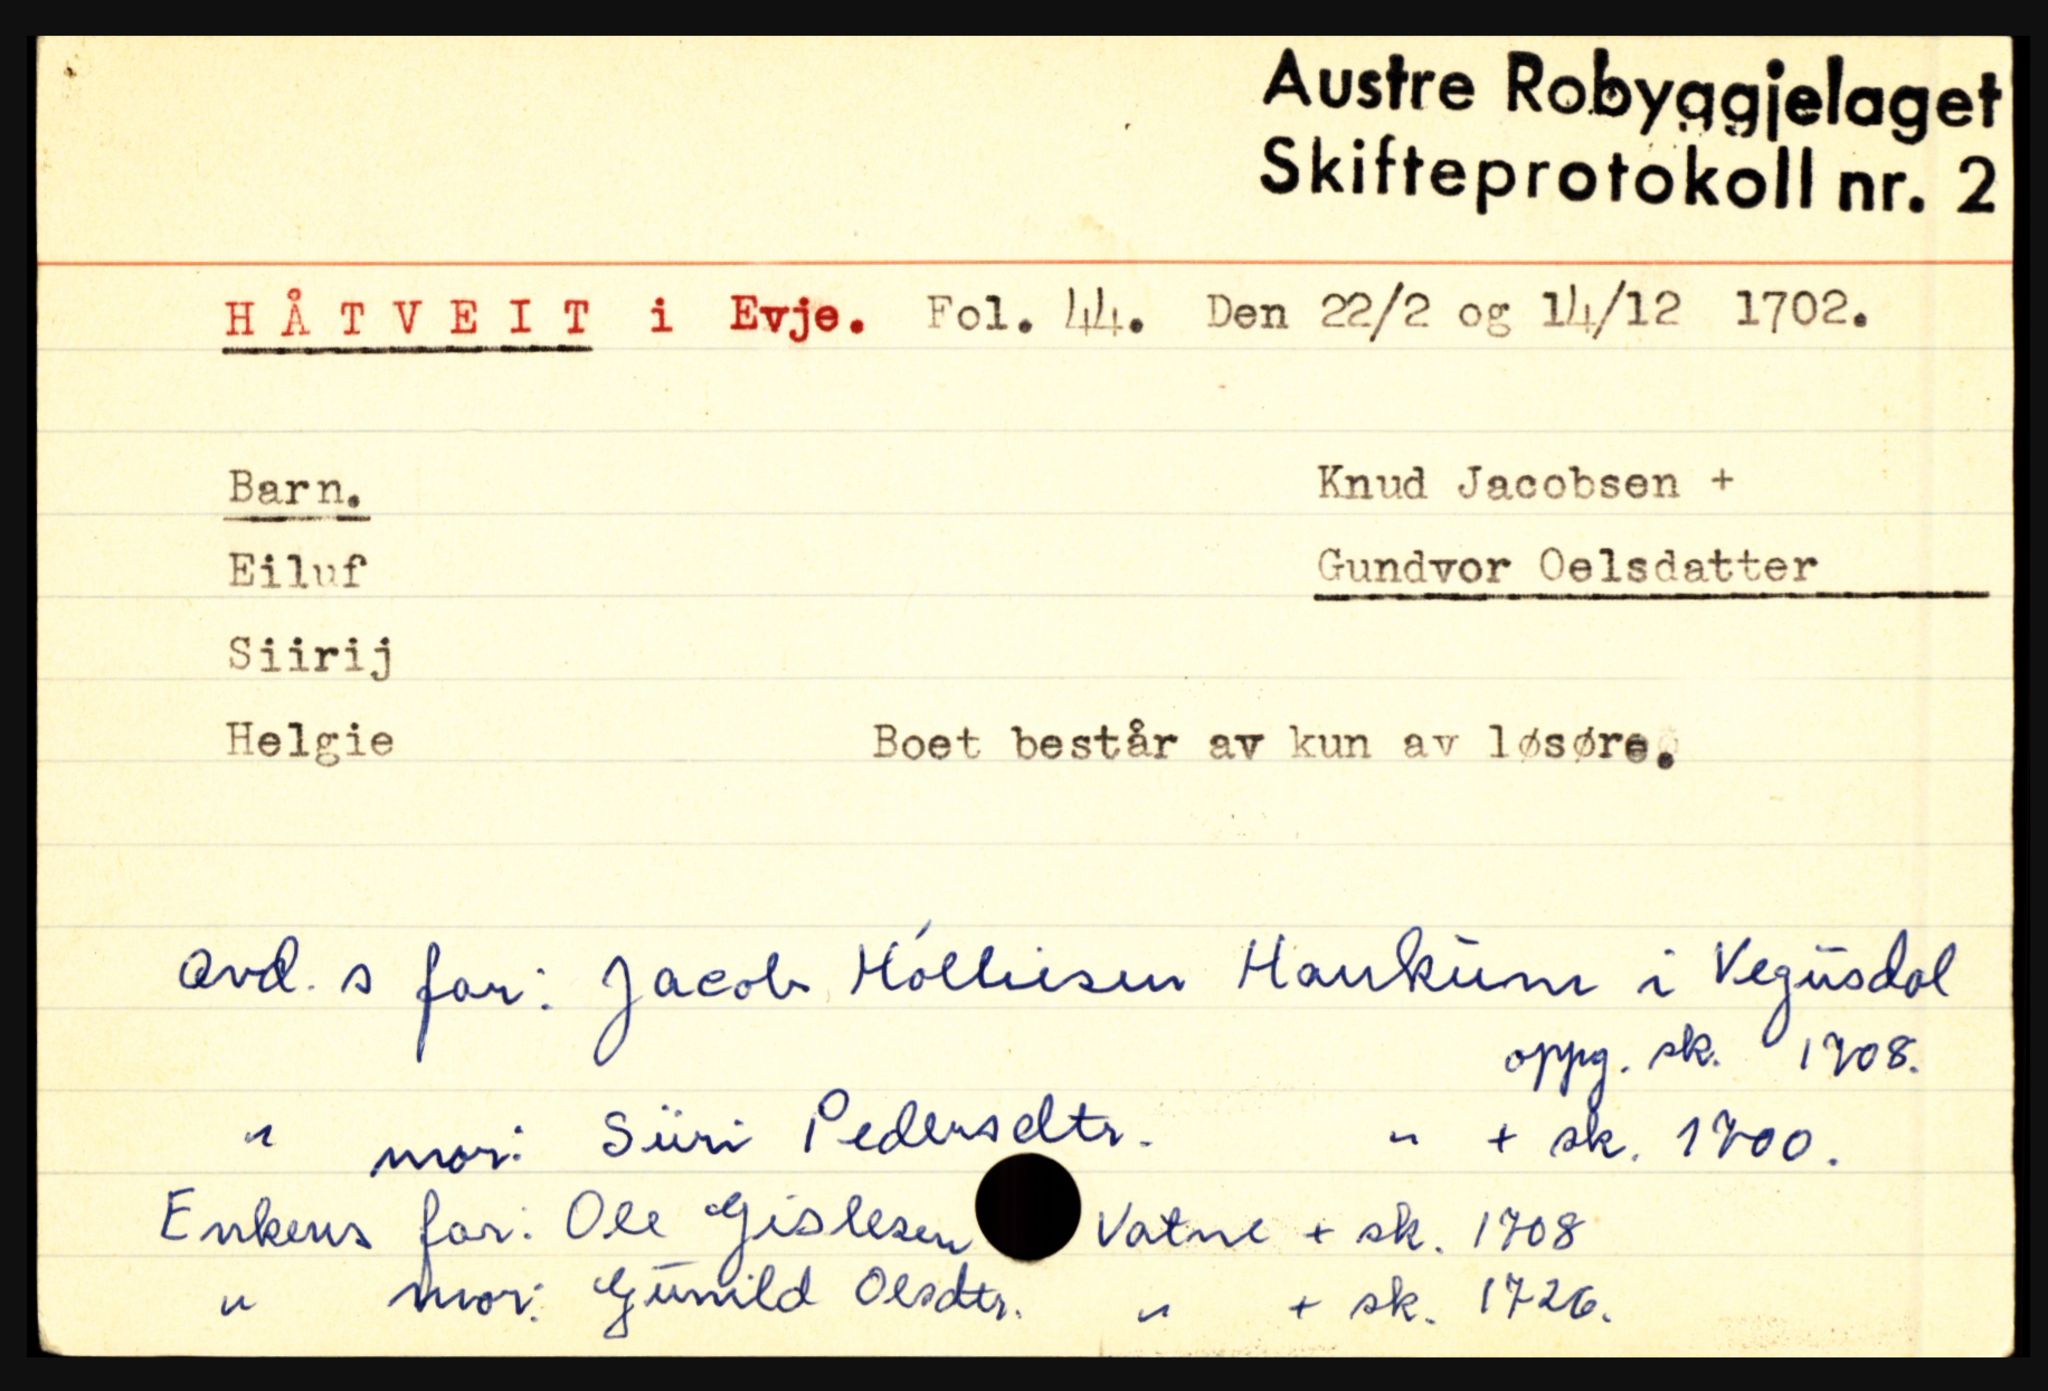 Austre Robyggjelaget
Skifteprotokoll nr. 2
HÅTVEIT i Evje. Fol. 44. Den 22/2 og 14/12 1702.
Barn. Knud Jacobsen +
Eiluf Gundvor Oelsdatter
Siirij
Helgie Boet består av kun av løsøre.
avd. s far: Jacob Haukum i Vegusdal
oppg. sk. 1708.
" mor: Siiri Pedersdtr. " + sk. 1700.
Enkens far: Ole Gislesen Vatne + sk. 1708
" mor: Gunild Olsdtr. " + sk. 1726.